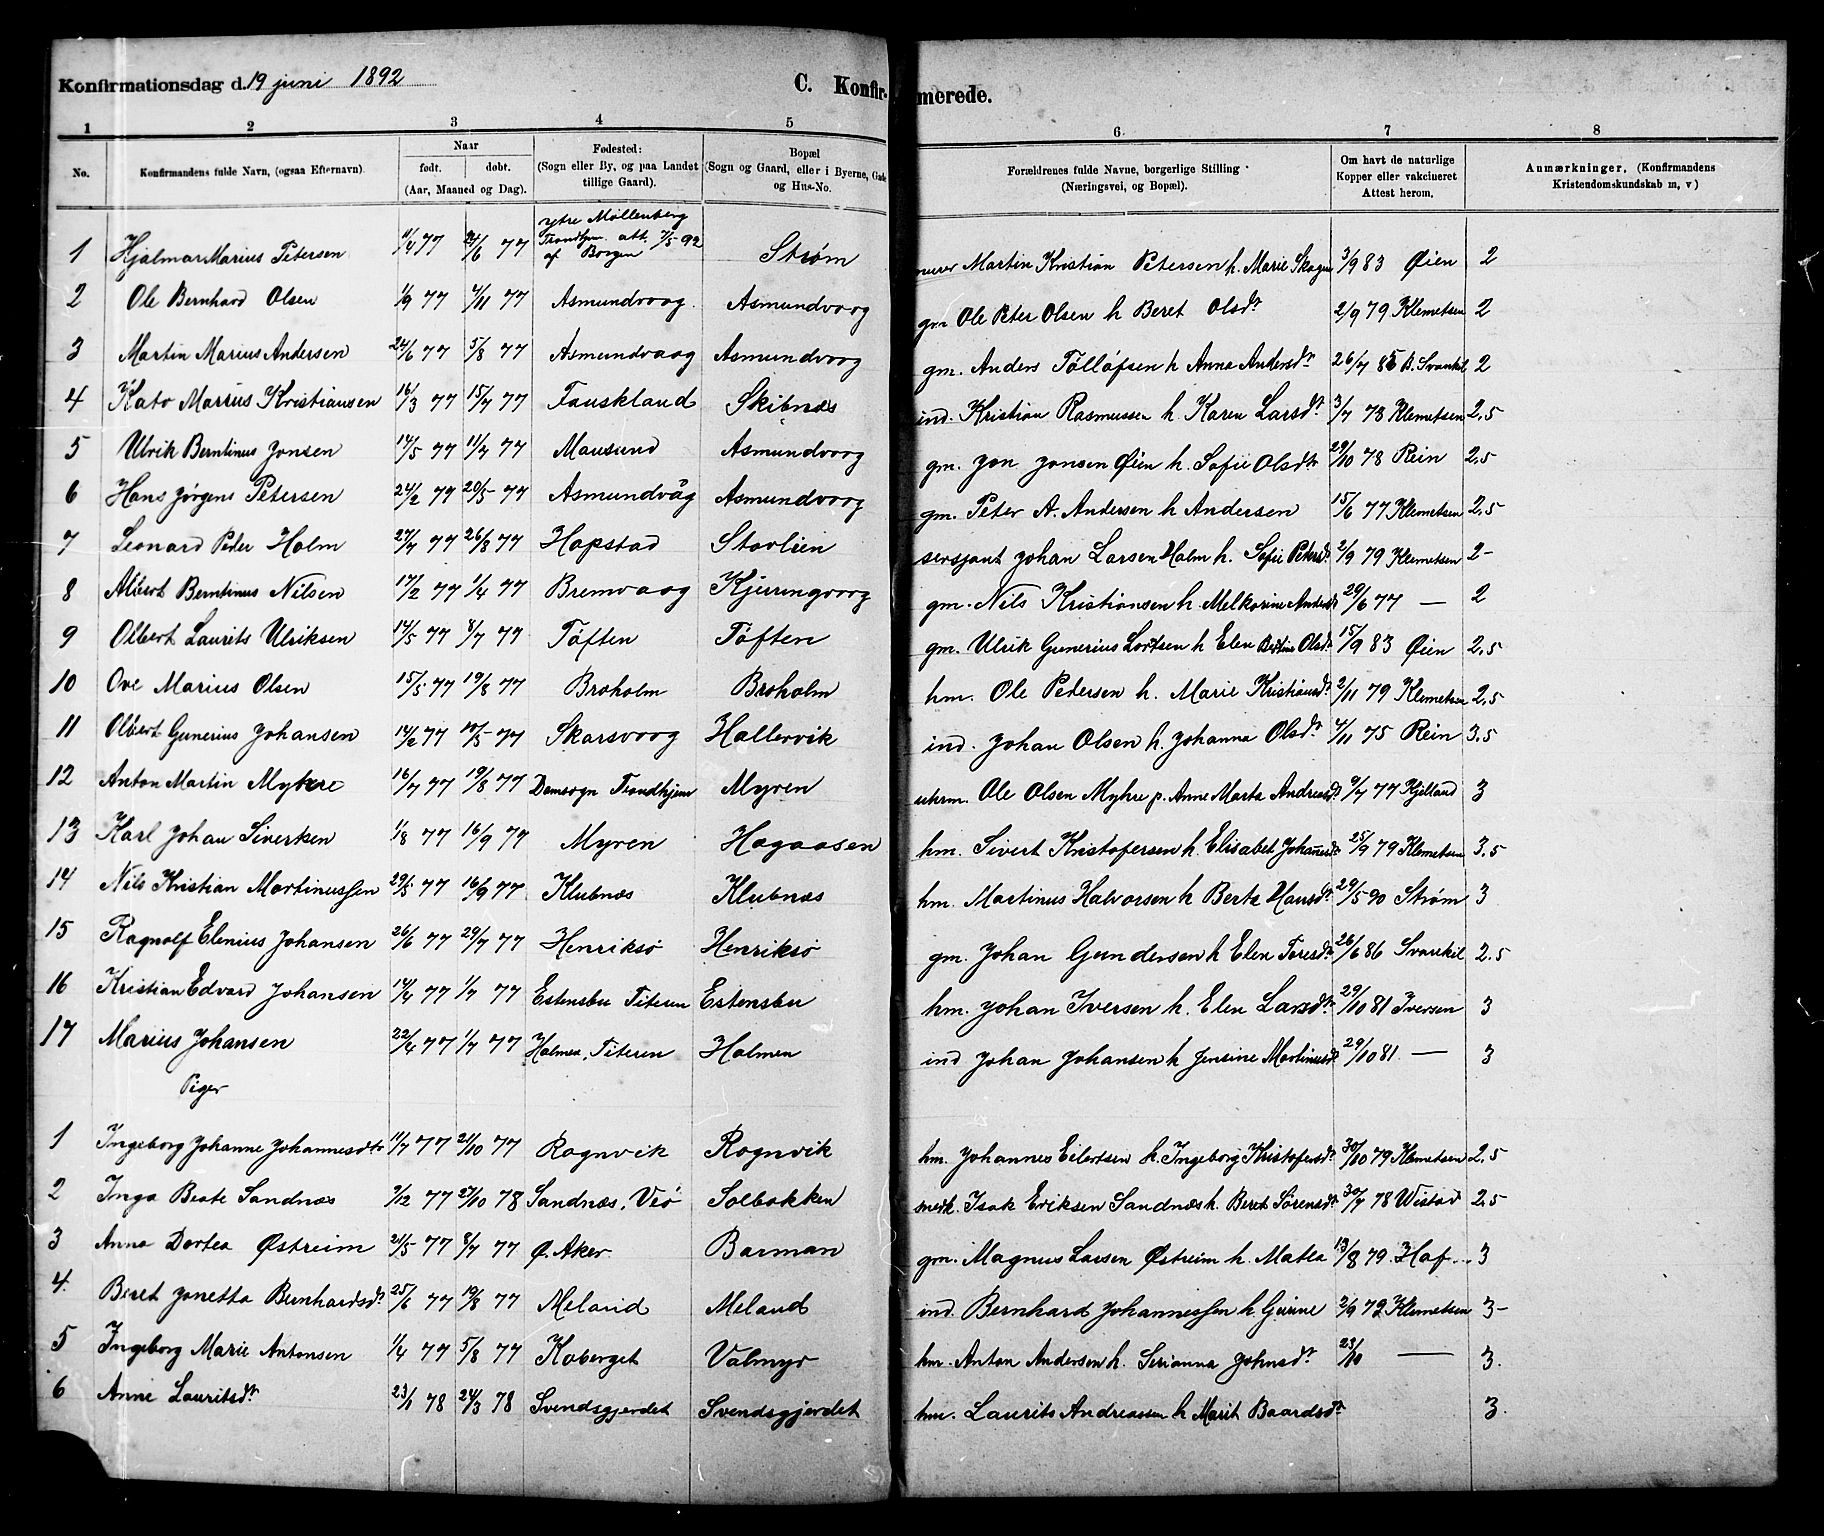 Konfirmationsdag d. 19 juni 1892
C. Konfirmerede.
1 2 3 4 5 6 7 8
No. Konfirmandens fulde Navn, (ogsaa Efternavn). Naar født. døbt. (Aar, Maaned og Dag). Fødested: (Sogn eller By, og paa Landet tillige Gaard). Bopæl (Sogn og Gaard, eller i Byerne, Gade og Hus-No. Forældrenes fulde Navne, borgerlige Stilling (Næringsvei, og Bopæl). Om havt de naturlige Kopper eller vakcineret Attest herom. Anmærkninger, (Konfirmandens Kristendomskundskab m, v)
1 Hjalmar Marius Petersen 11/4 77 24/6 77 ytre Møllenberg Trondhjem att. 7/5 92 af Borgen Strøm murer Martin Kristian Petersen h. Marie Skogen 3/9 83 Øien 2
2 Ole Bernhard Olsen 1/9 77 4/11 77 Asmundvaag Asmundvaag gm Ole Peter Olsen h Beret Olsdr 2/9 79 Klemetsen 2
3 Martin Marius Andersen 24/6 77 5/8 77 Asmundvaag Asmundvaag gm. Anders Tølløfsen h Anna Andersdr 26/7 85 B. Svankil 2
4 Kato Marius Kristiansen 16/3 77 15/7 77 Fauskland Skibnæs ind. Kristian Rasmussen h Karen Larsdr 3/7 78 Klemetsen 2,5
5 Ulrik Berntinus Jonsen 14/5 77 11/7 77 Mausund Asmundvaag gm. Jon Jonsen Øien h. Sofie Olsdtr 29/10 78 Rein 2,5
6 Hans Jørgens Petersen 24/2 77 20/5 77 Asmundvåg Asmundvaag gm. Peter A. Andersen h Andersen 15/6 77 Klemetsen 2,5
7 Leonard Peder Holm 27/7 77 26/8 77 Hopstad Stavlien sersjant Johan Larsen Holm h. Sofie Petersd. 2/9 79 Klemetsen 2-
8 Albert Berntinus Nilsen 17/2 77 1/4 77 Bremvaag Kjerringvaag gm. Nils Kristiansen h. Melkorine Andersd. 29/6 77 — 2
9 Olbert Laurits Ulriksen 14/5 77 8/7 77 Tøften Tøften gm. Ulrik Gunerius Lortsen h Elen Bertine Olsd. 15/9 83 Øien 2,5
10 Ove Marius Olsen 15/5 77 19/8 77 Broholm Broholm hm. Ole Pedersen h. Marie Kristiansd. 2/11 79 Klemetsen 2,5
11 Olbert Gunerius Johansen 14/2 77 10/5 77 Skarsvaag Hallervik ind. Johan Olsen h. Johanna Olsdr 4/11 75 Rein 3,5
12 Anton Martin Myhre 16/7 77 19/8 77 Domsogn Trondhjem Myren uhrm. Ole Olsen Myhre p. Anne Marta Andreasd. 9/7 77 Kjelland 3
13 Karl Johan Siverksen 1/8 77 16/9 77 Myren Hagaasen hm. Sivert Kristofersen h. Elisabet Johannesd. 25/9 79 Klemetsen 3,5
14 Nils Kristian Martinussen 29/5 77 16/9 77 Klubnæs Klubnæs hm. Martinus Halvorsen h Berta Hansdr 29/5 90 Strøm 3
15 Ragnolf Elenius Johansen 26/6 77 29/7 77 Henriksø Henriksø gm. Johan Gundersen h Elen Toresdr 26/6 86 Svankil 2,5
16 Kristian Edvard Johansen 14/4 77 1/7 77 Estensbu Titeren Estensbu hm. Johan Iversen h. Elen Larsdr 29/10 81 Iversen 3
17 Marius Johansen 22/4 77 1/7 77 Holmen, Titeren Holmen ind Johan Johansen h Jensine Martinusd. 29/10 81. — 3
Piger
1 Ingeborg Johanne Johannesdtr 11/7 77 21/10 77 Rognvik Rognvik hm. Johannes Eilertsen h. Ingeborg Kristofersd. 30/10 79 Klemetsen 2,5
2 Inga Beate Sandnæs 7/12 77 27/10 78 Sandnæs, Veø Solbakken Isak Eriksen Sandnæs h. Beret Sørensd. 30/7 78 Wistad 2,5
3 Anna Dortea Østreim 21/5 77 8/7 77 Ø. Aker Barman gm. Magnus Larsen Østreim h. Matea 13/8 79. Haf... 3
4. Beret Jonetta Bernhardsdr 25/6 77 19/8 77 Meland Meland ind. Bernhard Johannessen h. Gurine 2/9 72 Klemetsen 3-
5 Ingeborg Marie Antonsen 1/4 77 5/8 77 Kaberget Valmyr hm. Anton Andersen h. Serianna Johnsdr 23/10 — 3.
6 Anne Lauritsdr 23/1 78 24/3 78 Svendsgjerdet Svendsgjerdet hm. Laurits Andreassen h Marit Baardsdr 3.